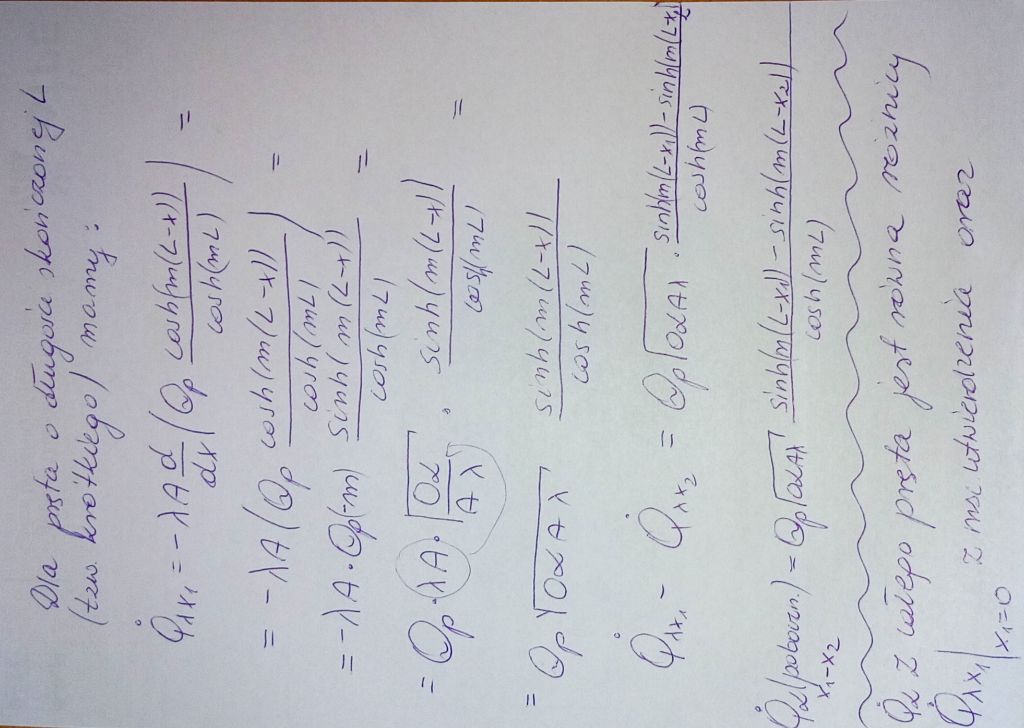 Dla pręta o długości skończonej L
(tzw. krótkiego) mamy:
Q̇λx₁ = -λA d/dx (Θp cosh(m(L-x))/cosh(mL)) =
= -λA (Θp cosh(m(L-x))/cosh(mL)) =
= -λA·Θp(-m) sinh(m(L-x))/cosh(mL) =
= Θp·λA·√(Oα/Aλ) · sinh(m(L-x))/cosh(mL) =
= Θp √(OαAλ) sinh(m(L-x))/cosh(mL)
Q̇λx₁ - Q̇λx₂ = Θp √(OαAλ) · sinh(m(L-x₁))-sinh(m(L-x₂))/cosh(mL)
Q̇α(poboczn.) x₁-x₂ = Θp √(OαAλ) sinh(m(L-x₁))-sinh(m(L-x₂))/cosh(mL)
Q̇α z całego pręta jest równa różnicy
Q̇λx₁|x₁=0 z msc utwierdzenia oraz